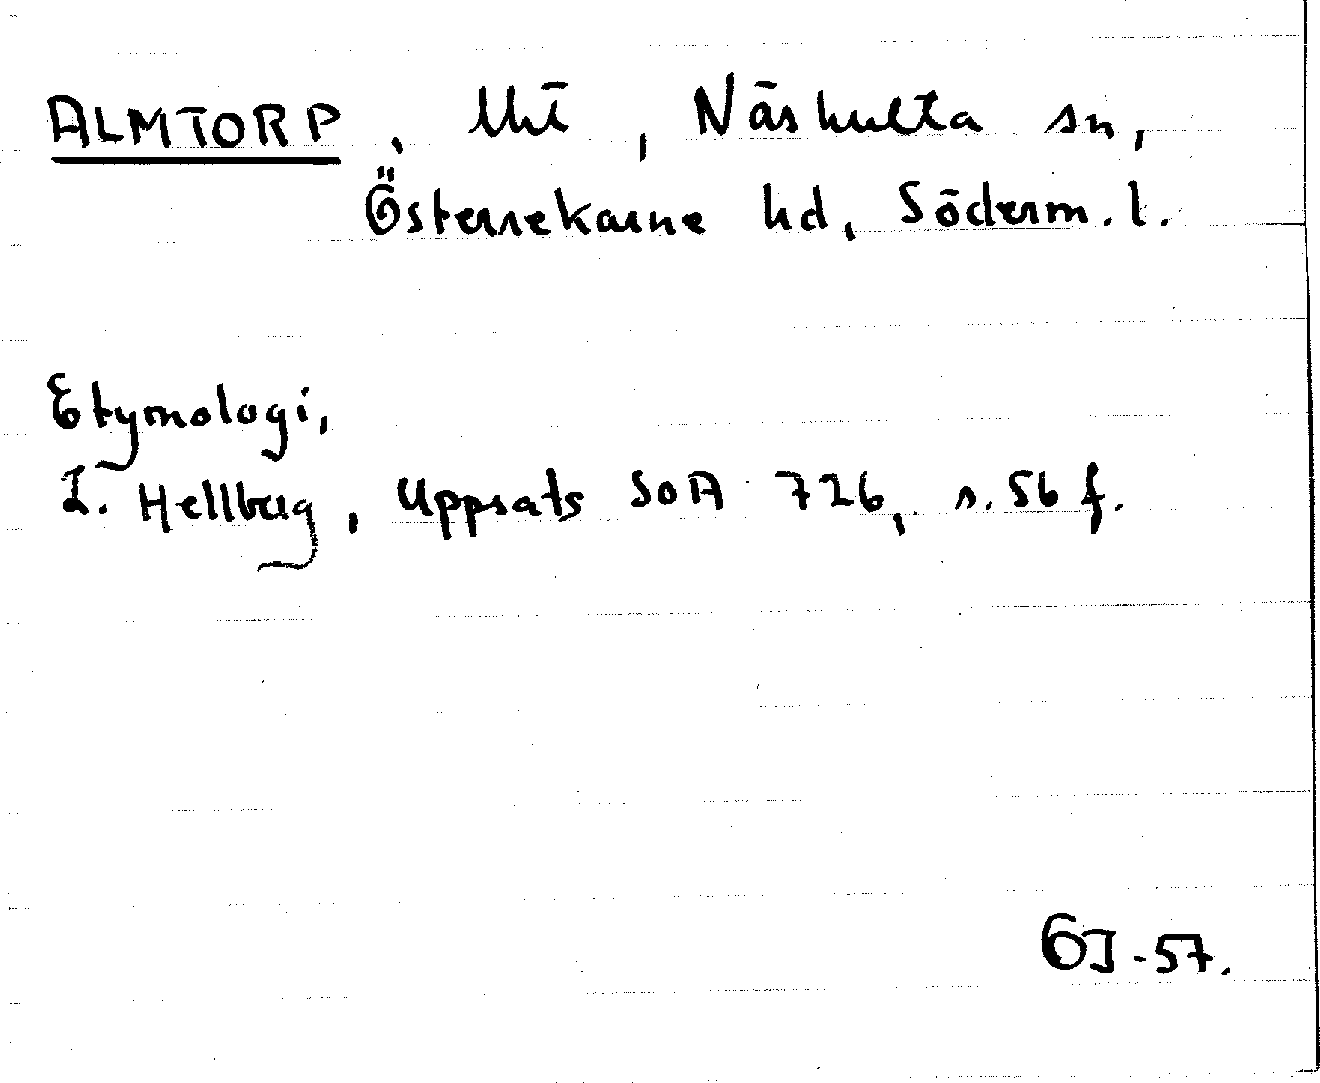 ALMTORP, Uht, Näshulta sn,
Österrekarne hd, Söderm. l.
Etymologi,
L. Hellberg, Uppsats SOA 726, s. 56 f.
-57.